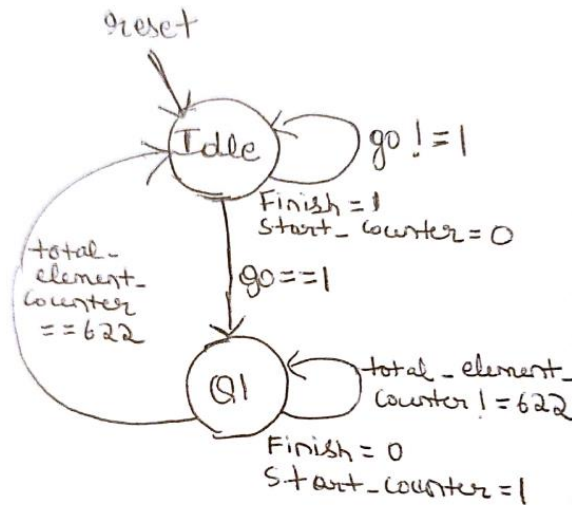 reset
Idle
go != 1
Finish = 1
Start_counter = 0
total_
element_
counter
== 622
go == 1
Q1
total_element_
counter != 622
Finish = 0
Start_counter = 1